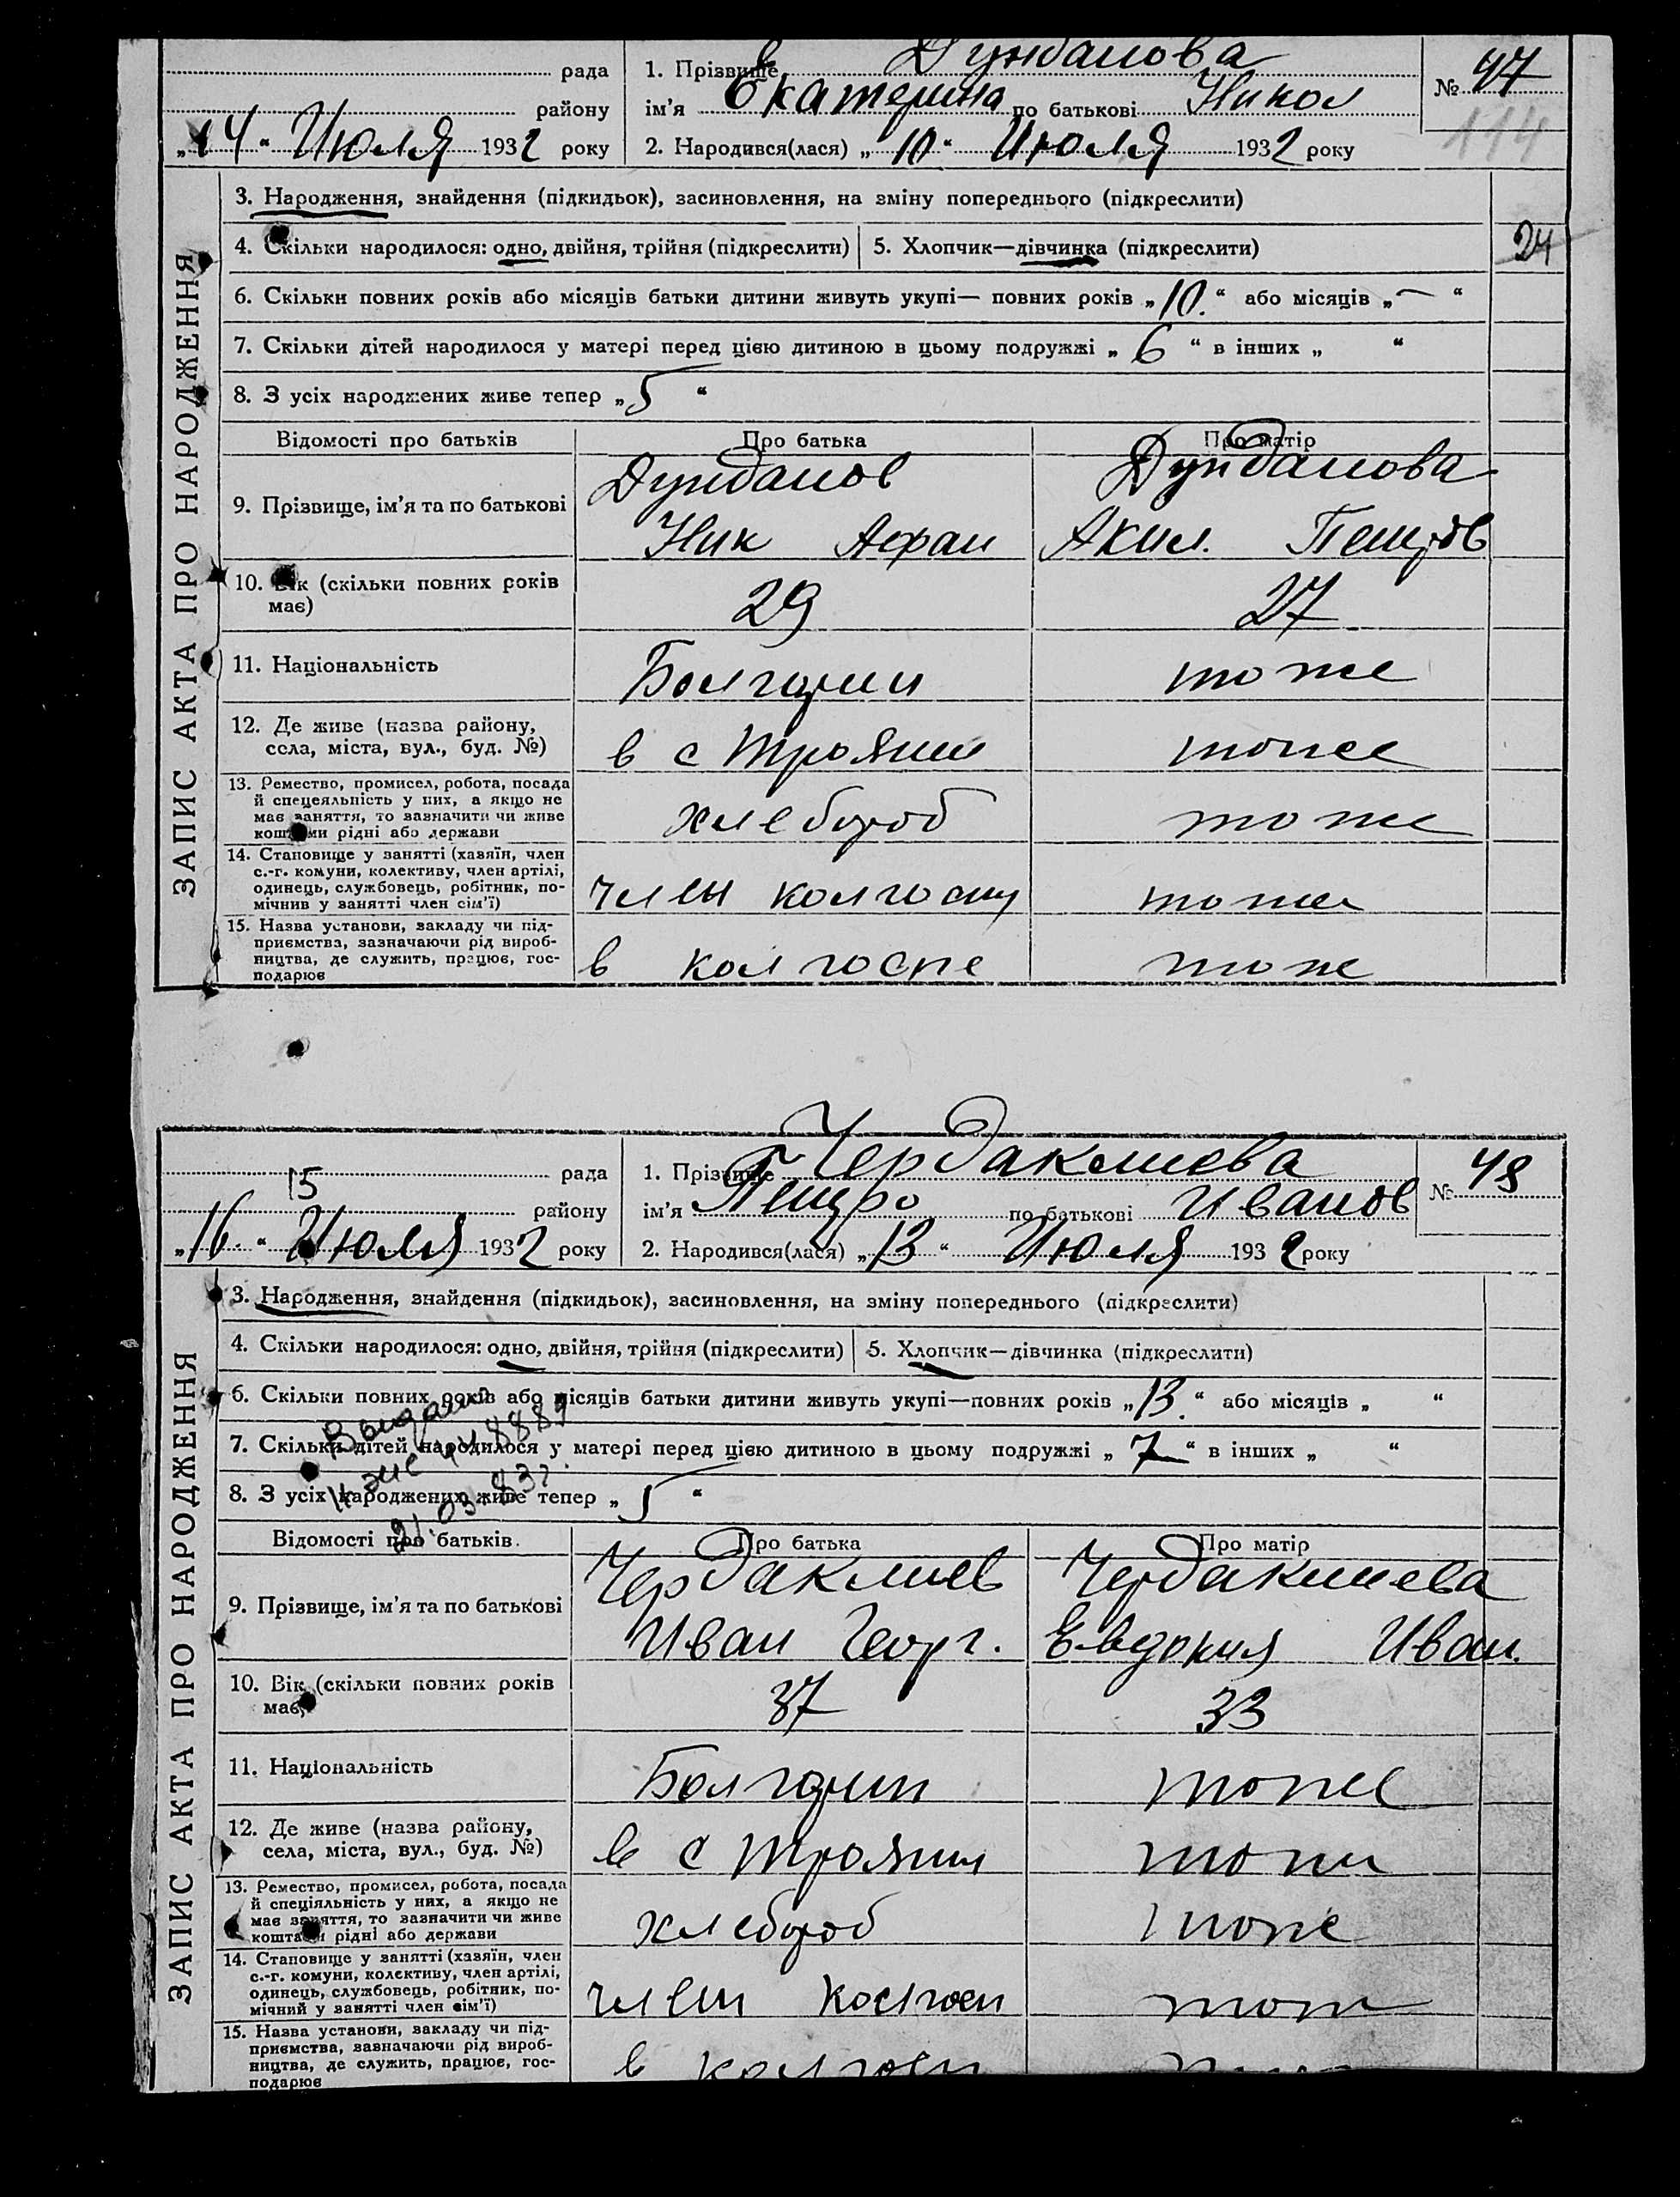 рада
району
„14“ Июля 1932 року
1. Прізвище Дунданова
ім’я Екатерина по батькові Никол
2. Народився(лася) „10“ Июля 1932 року
№ 47
114
ЗАПИС АКТА ПРО НАРОДЖЕННЯ
3. Народження, знайдення (підкидьок), засиновлення, на зміну попереднього (підкреслити)
4. Скільки народилося: одно, двійня, трійня (підкреслити) 5. Хлопчик—дівчинка (підкреслити)
24
6. Скільки повних років або місяців батьки дитини живуть укупі— повних років „10.“ або місяців „—“
7. Скільки дітей народилося у матері перед цією дитиною в цьому подружжі „6“ в інших „ “
8. З усіх народжених живе тепер „5“
Відомості про батьків Про батька Про матір
9. Прізвище, ім’я та по батькові
Дунданов Дунданова
Ник Афан Акил. Петров
10. Вік (скільки повних років
має)
29 27
11. Національність Болгарин тоже
12. Де живе (назва району,
села, міста, вул., буд. №)
в с Трояни тоже
13. Ремество, промисел, робота, посада
й спецеяльність у них, а якщо не
має заняття, то зазначити чи живе
коштами рідні або держави
хлебороб тоже
14. Становище у занятті (хазяїн, член
с.-г. комуни, колективу, член артілі,
одинець, службовець, робітник, по-
мічнив у занятті член сім’ї)
член колгоспу тоже
15. Назва установи, закладу чи під-
приємства, зазначаючи рід вироб-
ництва, де служить, працює, гос-
подарює
в колгоспе тоже
рада
15
району
„16.“ Июля 1932 року
1. Прізвище Чердаклиева
ім’я Петро по батькові Иванов
2. Народився(лася) „13“ Июля 1932 року
№ 48
ЗАПИС АКТА ПРО НАРОДЖЕННЯ
3. Народження, знайдення (підкидьок), засиновлення, на зміну попереднього (підкреслити)
4. Скільки народилося: одно, двійня, трійня (підкреслити) 5. Хлопчик—дівчинка (підкреслити)
6. Скільки повних років або місяців батьки дитини живуть укупі—повних років „13.“ або місяців „ “
7. Скільки дітей народилося у матері перед цією дитиною в цьому подружжі „7“ в інших „ “
8. З усіх народжених живе тепер „5“
21.03.83г.
Відомості про батьків. Про батька Про матір
9. Прізвище, ім’я та по батькові
Чердаклиев Чердаклиева
Иван Георг. Евдокия Иван.
10. Вік (скільки повних років
має)
37 33
11. Національність Болгарин тоже
12. Де живе (назва району,
села, міста, вул., буд. №)
в с Трояни тоже
13. Ремество, промисел, робота, посада
й спеціяльність у них, а якщо не
має заняття, то зазначити чи живе
коштами рідні або держави
хлебороб тоже
14. Становище у занятті (хазяїн, член
с.-г. комуни, колективу, член артілі,
одинець, службовець, робітник, по-
мічний у занятті член сім’ї)
член колгосп тоже
15. Назва установи, закладу чи під-
приємства, зазначаючи рід вироб-
ництва, де служить, працює, гос-
подарює
в колгосп